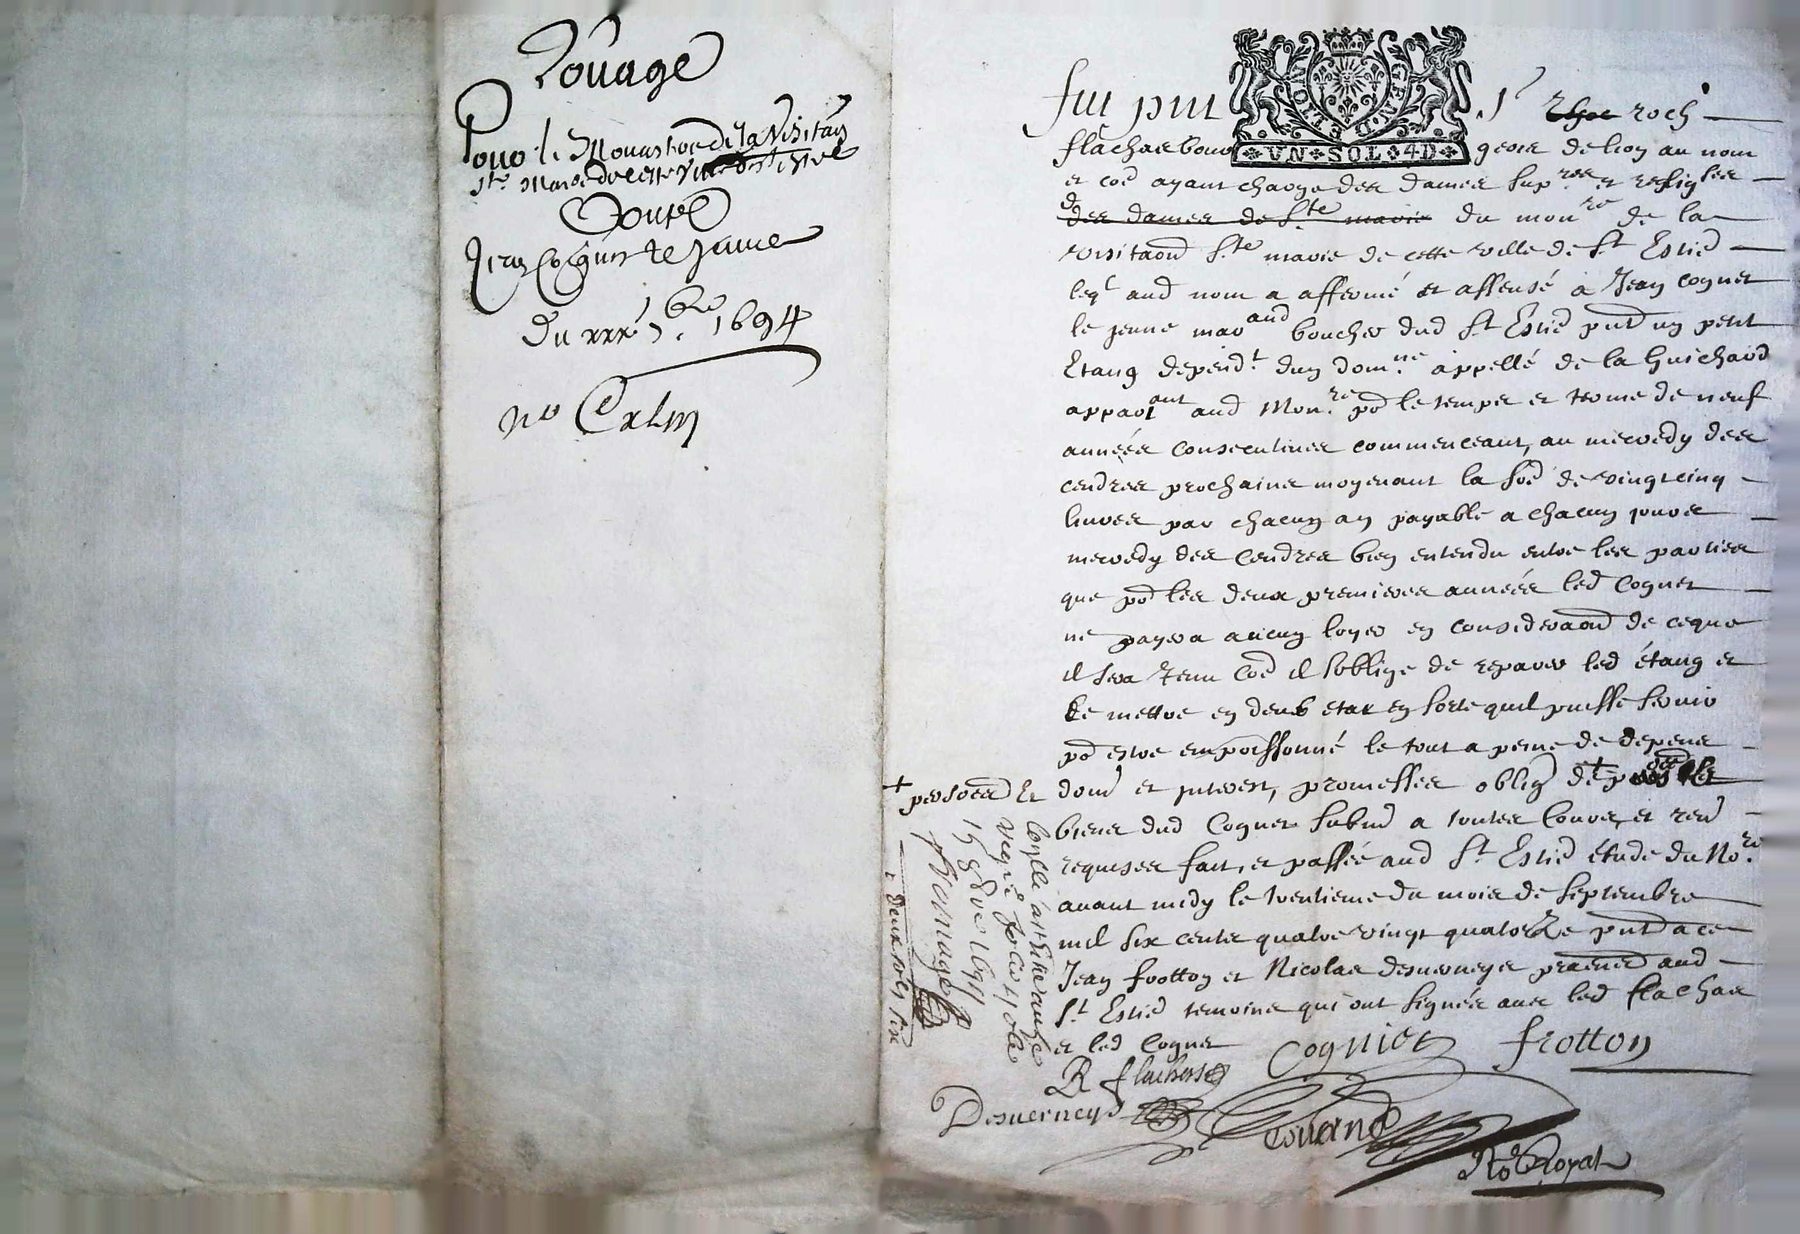 Loüage
Pour le Monastere de la Visitaõn
Ste Marie de cette ville de St Estne
Contre
Jean Cognet le Jeune
Du xxxe 7bre 1694
no Cxlm
GEN.DE LION
UN SOL 4D
fut pnt Sr roch
flachat bour geois de lion au nom
et coẽ ayant charge des dames supres et religses
des dames de Ste marie du monre de la
visitaoñ Ste marie de cette ville de St Estieñ
leql aud nom a affermé et assensé à Jean Cognet
le jeune marand boucher dud St Estieñ pnt un petit
Etang dependt dun domne appellé de la Guichard
appartant aud Monre põ le temps et terme de neuf
années consecutives commenceant, au mercredy des
cendres prochaines moyenant la soẽ de vingt cinq
livres par chacun an payable a chacun jour de
mercredy des Cendres bien entendu entre les parties
que põ les deux premieres années led Cognet
ne payera aucun loyer en consideraoñ de ce que
il sera tenu Coẽ il soblige de reparer led étang et
le mettre en deub etat en sorte quil puisse servir
põ estre empoissonné le tout a peine de depens
dom et interest, promesses oblig de +
+ personẽ Et
biens dud Cognet submis a toutes Cours, et ren
requises fait, et passée aud St Estieñ étude du Nore
avant midy le trentieme du mois de septembre
mil six cents quatre vingt quatorze pnt a ce
Jean frotton et Nicolas desverneys aud
St Estieñ temoins qui ont signés avec led flachat
et led Cognet
Cognier frotton
R flachat
Desverneys
Nore Royal
folio
1694
deux sols six